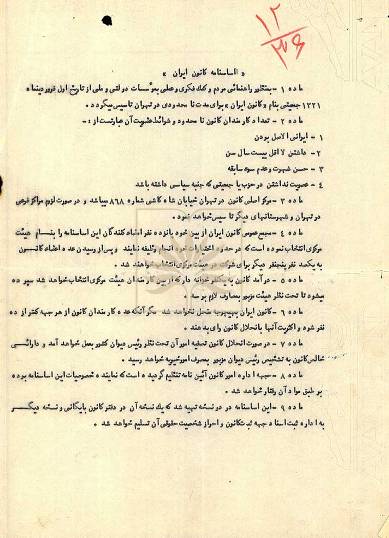 ۱۲
۲۰۶
« اساسنامه کانون ایران »
ماده ۱ - بمنظور راهنمائی مردم و کمک فکری و عملی بمؤسسات دولتی و ملی از تاریخ اول فروردینماه
۱۳۲۱ جمعیتی بنام « کانون ایران » برای مدت نامحدودی در تهران تاسیس میگردد.
ماده ۲ - تعداد کارمندان کانون نامحدود و شرائط عضویت آن عبارتست از :-
۱ - ایرانی الاصل بودن
۲ - داشتن لااقل بیست سال سن
۳ - حسن شهرت و عدم سوء سابقه
۴ - عضویت نداشتن در حزب یا جمعیتی که جنبه سیاسی داشته باشد
ماده ۳ - مرکز اصلی کانون در تهران خیابان شاه کاشی شماره ۸۶۸ میباشد و در صورت لزوم مراکز فرعی
در تهران و شهرستانهای دیگر تاسیس خواهد نمود.
ماده ۴ - مجمع عمومی کانون ایران از بین خود پانزده نفر امضاء کنندگان این اساسنامه را بنام هیئت
مرکزی انتخاب نموده است که در حدود اختیارات خود انجام وظیفه نمایند و پس از رسیدن عده اعضاء کانون
به یکصد نفر پنجنفر دیگر برای شرکت در هیئت مرکزی انتخاب خواهند شد.
ماده ۵ - درآمد کانون به یکنفر خزانه دار که از بین کارمندان هیئت مرکزی انتخاب خواهد شد سپرده
میشود تا تحت نظر هیئت مزبور بمصارف لازم برسد.
ماده ۶ - کانون ایران بهیچوجه منحل نخواهد شد مگر آنکه عده کارمندان کانون از هر جهة کمتر از ده
نفر شود و اکثریت آنها بانحلال کانون رای بدهند.
ماده ۷ - در صورت انحلال کانون تصفیه امور آن تحت نظر رئیس دیوان کشور بعمل خواهد آمد و دارائی
خالص کانون به تشخیص رئیس دیوان مزبور بمصرف امور خیریه خواهد رسید.
ماده ۸ - جهة اداره امور کانون آئین نامه تنظیم گردیده است که نماینده خصوصیات این اساسنامه بوده
بر طبق مواد آن رفتار خواهد شد.
ماده ۹ - این اساسنامه در دو نسخه تهیه شد که یک نسخه آن در دفتر کانون بایگانی و نسخه دیگر
به اداره ثبت اسناد جهة ثبت کانون و احراز شخصیت حقوقی آن تسلیم خواهد شد.